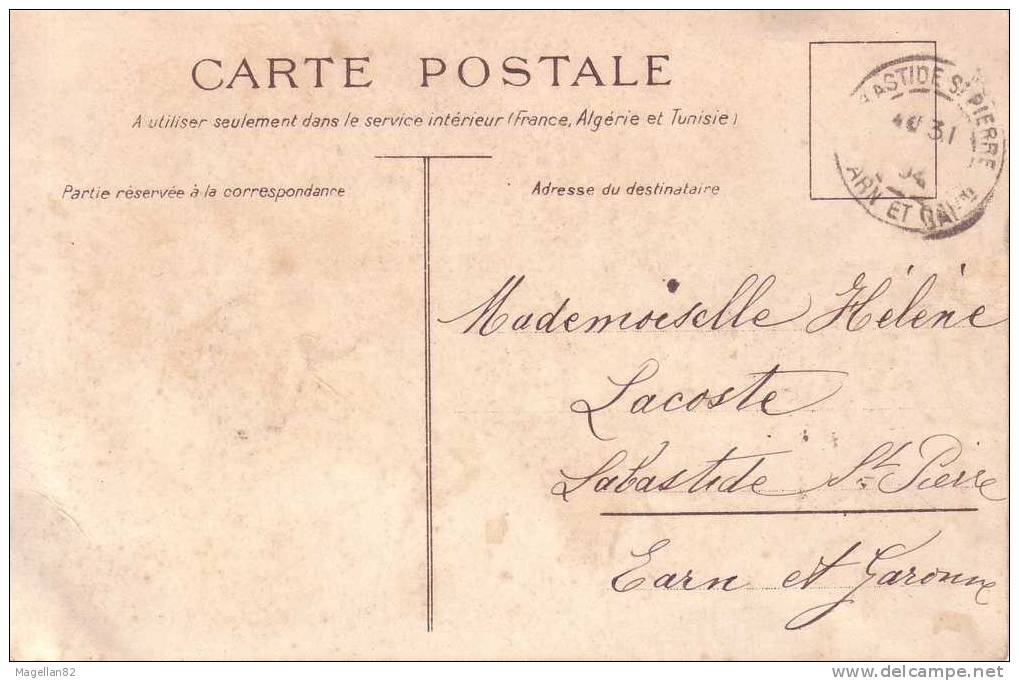 CARTE POSTALE
A utiliser seulement dans le service intérieur (France, Algérie et Tunisie)
Partie réservée à la correspondance
Adresse du destinataire
ASTIDE St PIERRE
31
04
ARN ET GAR
Mademoiselle Hélène
Lacoste
Labastide St Pierre
Tarn et Garonne
Magellan82
www.delcampe.net